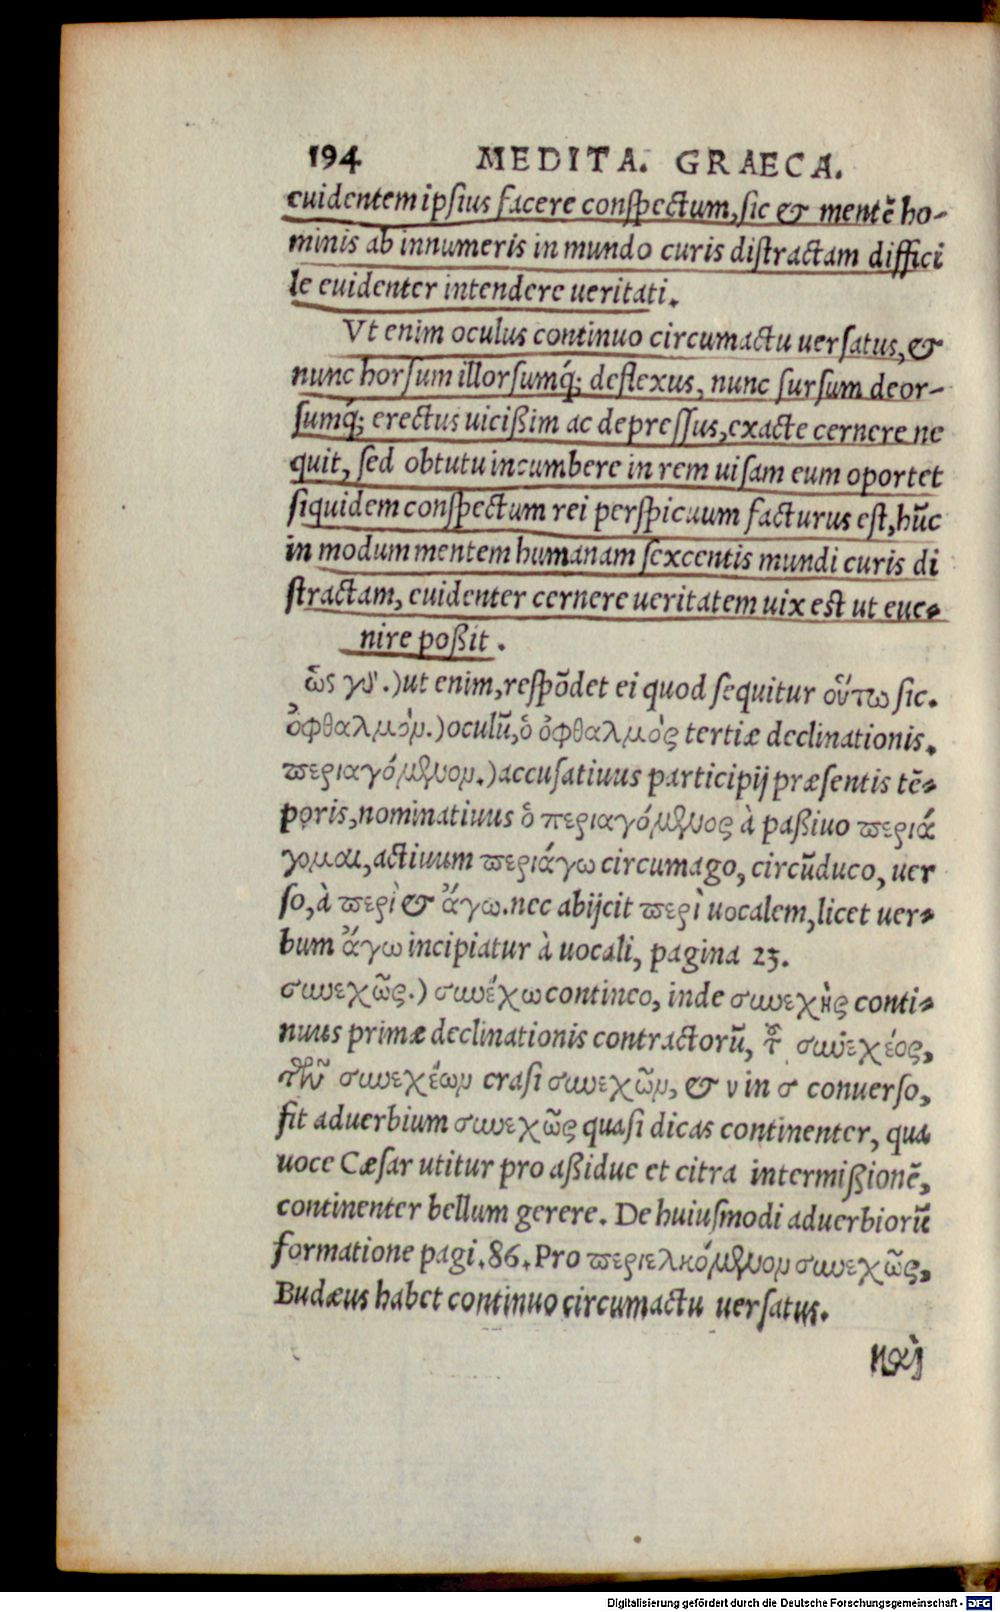 194 MEDITA. GRAECA.
euidentem ipsius facere conspectum, sic & mentẽ ho-
minis ab innumeris in mundo curis distractam diffici
le euidenter intendere ueritati.
Vt enim oculus continuo circumactu uersatus, &
nunc horsum illorsumq́; deflexus, nunc sursum deor-
sumq́; erectus uicißim ac depressus, exacte cernere ne
quit, sed obtutu incumbere in rem uisam eum oportet
siquidem conspectum rei perspicuum facturus est, hũc
in modum mentem humanam sexcentis mundi curis di
stractam, euidenter cernere ueritatem uix est ut eue-
nire poßit.
ὡς γδ.) ut enim, respõdet ei quod sequitur οὕτω sic.
ὀφθαλμὸν.) oculũ, ὁ ὀφθαλμὸς tertiæ declinationis.
περιαγόμενον.) accusatiuus participij præsentis tẽ-
poris, nominatiuus ὁ περιαγόμενος à paßiuo περιά
γομαι, actiuum περιάγω circumago, circũduco, uer
so, à περὶ & ἄγω. nec abijcit περὶ uocalem, licet uer-
bum ἄγω incipiatur à uocali, pagina 23.
συνεχῶς.) συνέχω contineo, inde συνεχὴς conti-
nuus primæ declinationis contractorũ, τ͂ συνεχέος,
τῶν συνεχέων crasi συνεχῶν, & ν in σ conuerso,
fit aduerbium συνεχῶς quasi dicas continenter, qua
uoce Cæsar utitur pro aßidue et citra intermißionẽ,
continenter bellum gerere. De huiusmodi aduerbiorũ
formatione pagi. 86. Pro περιελκόμενον συνεχῶς,
Budæus habet continuo circumactu uersatus.
καὶ
Digitalisierung gefördert durch die Deutsche Forschungsgemeinschaft - DFG